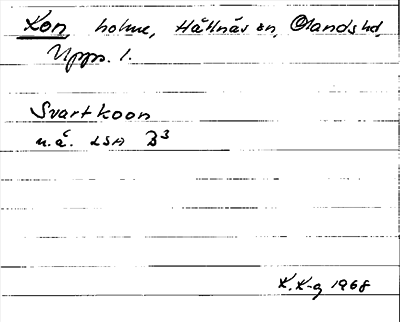 Kon holme, Hållnäs sn, Olands hd,
Upps. l.
Svartkoon
u.å. LSA B3
K. K-g 1968